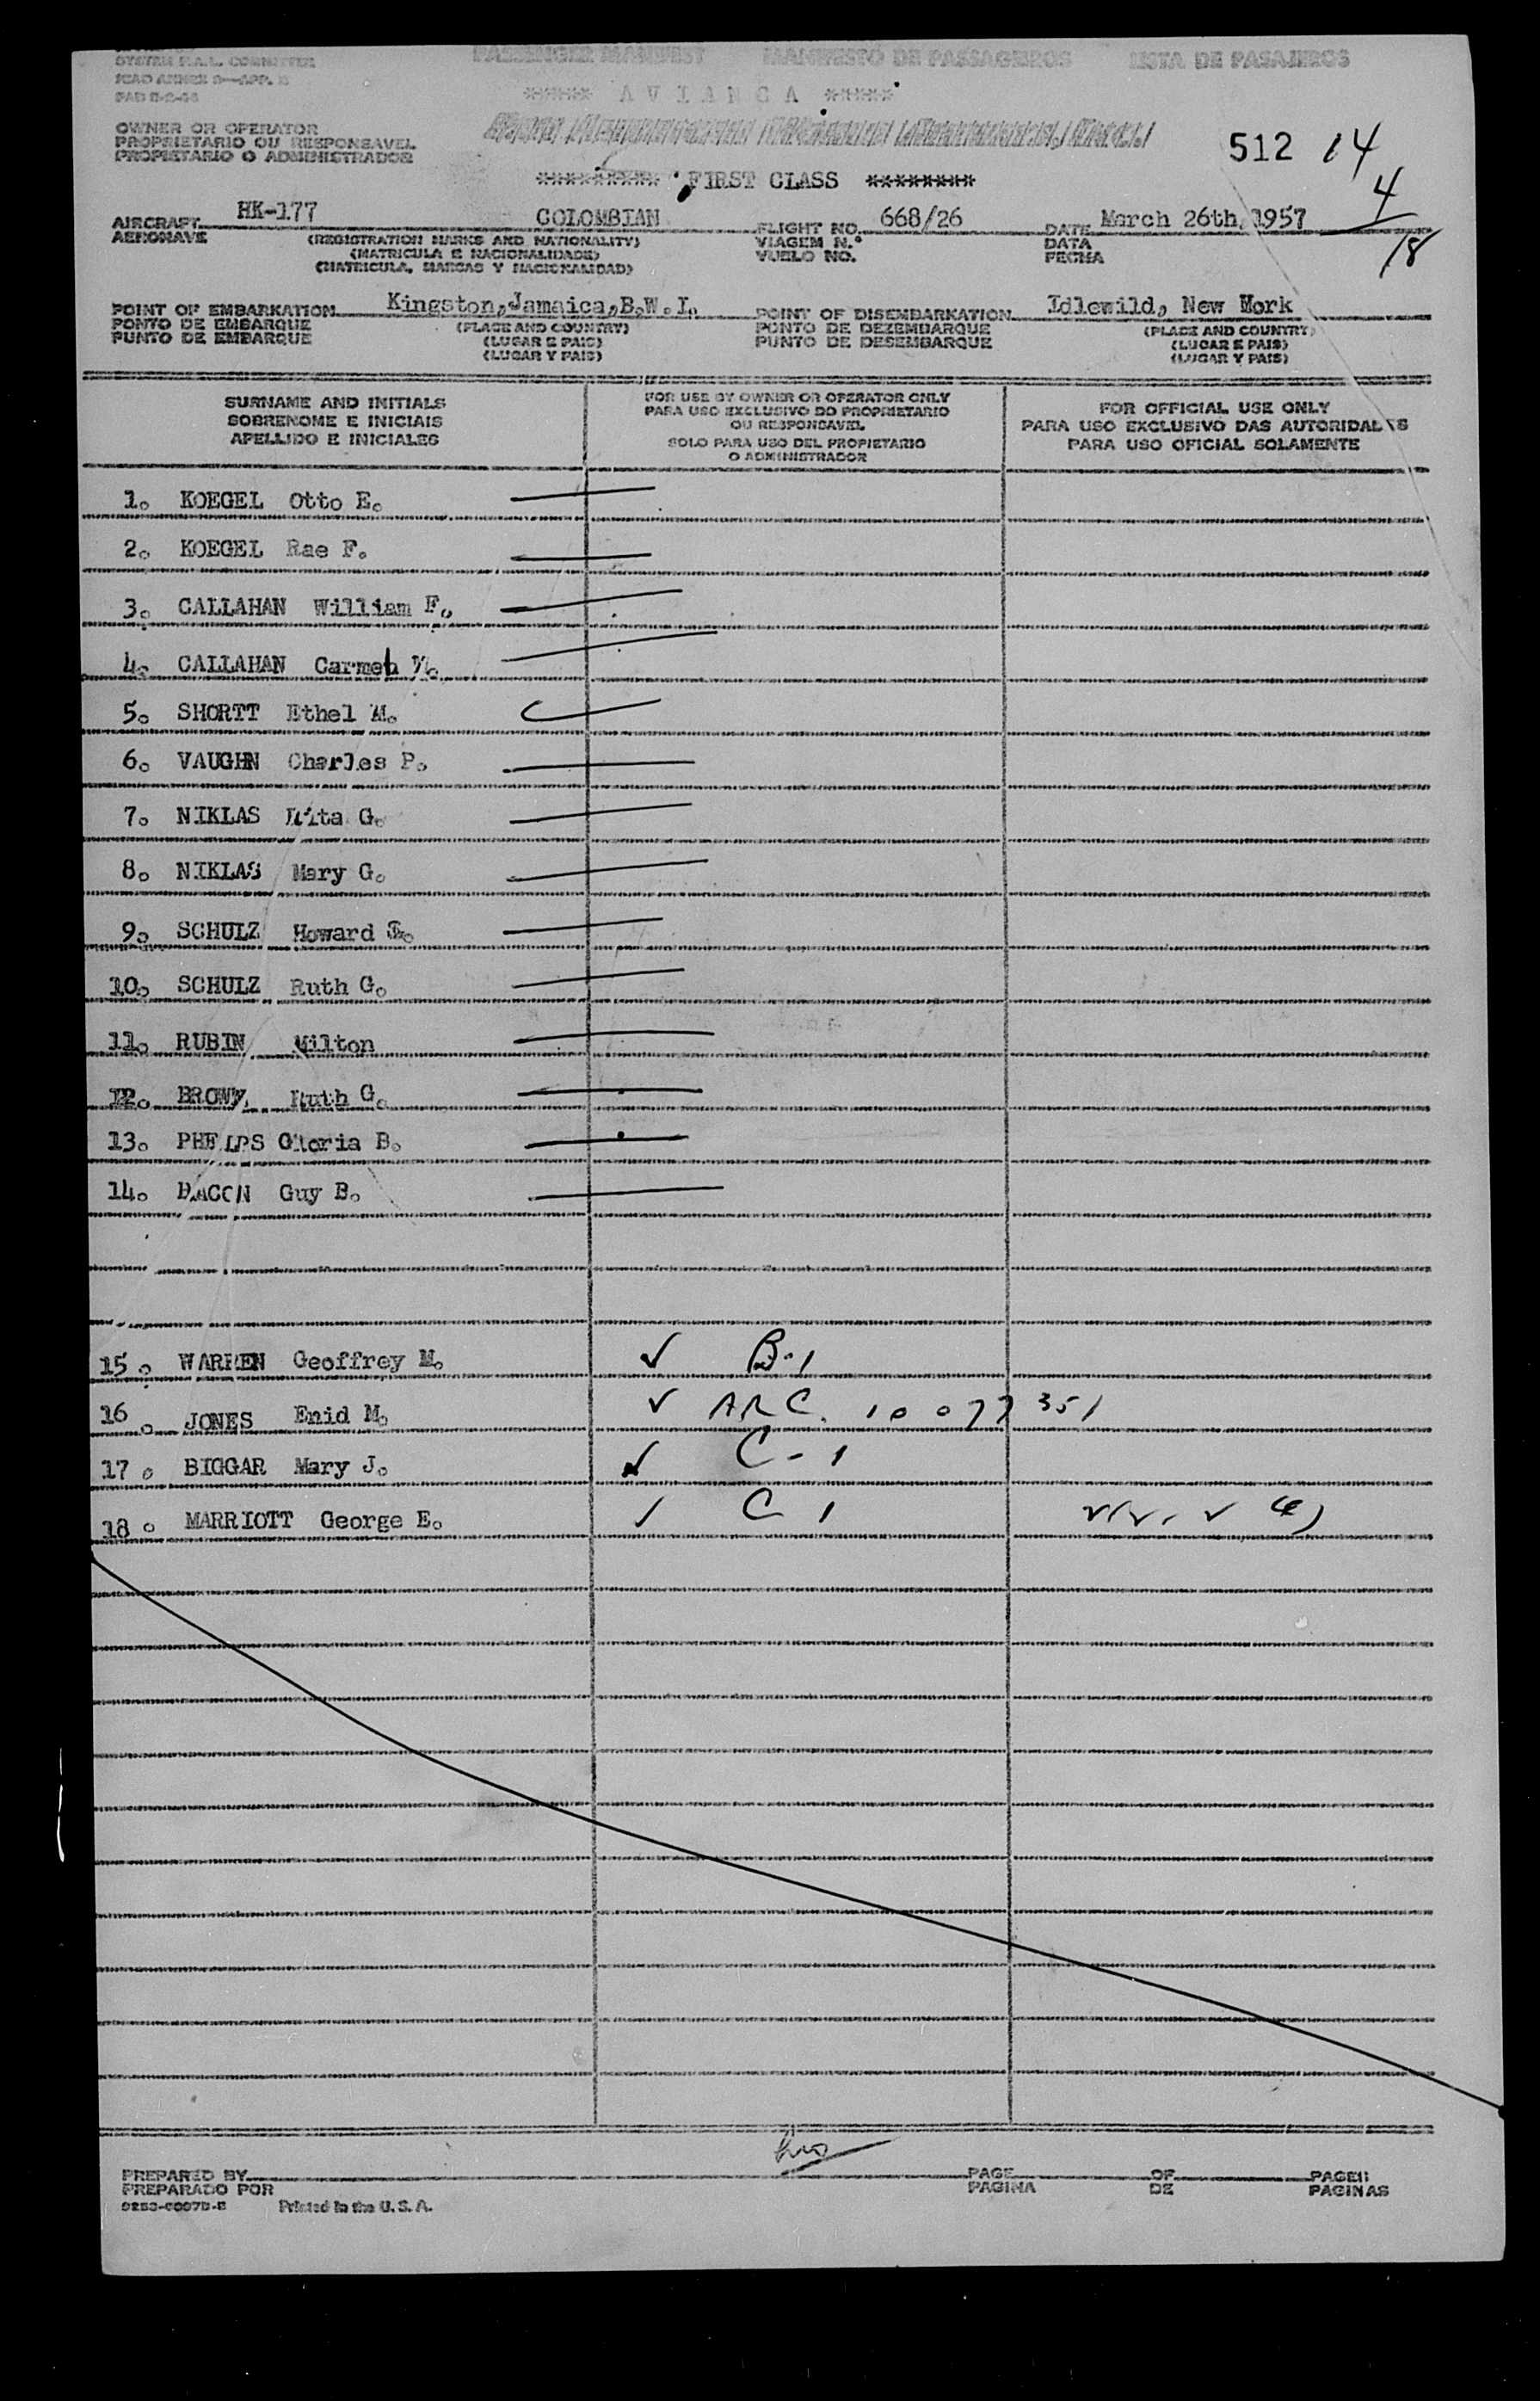 SYSTEM F.A.L. COMMITTEE
ICAO ANNEX 9—APP. E
PASSENGER MANIFEST MANIFESTO DE PASSAGEIROS LISTA DE PASAJEROS
***** AVIANCA *****
OWNER OR OPERATOR
PROPRIETARIO OU RESPONSAVEL
PROPIETARIO O ADMINISTRADOR
512 14
********* FIRST CLASS ********
4
18
AIRCRAFT HK-177 COLOMBIAN FLIGHT NO. 668/26 DATE March 26th, 1957
AERONAVE (REGISTRATION MARKS AND NATIONALITY) VIAGEM N.º DATA
(MATRICULA E NACIONALIDADE) VUELO NO. FECHA
(MATRICULA, MARCAS Y NACIONALIDAD)
POINT OF EMBARKATION Kingston, Jamaica, B.W.I. POINT OF DISEMBARKATION Idlewild, New York
PONTO DE EMBARQUE (PLACE AND COUNTRY) PONTO DE DEZEMBARQUE (PLACE AND COUNTRY)
PUNTO DE EMBARQUE (LUGAR E PAIS) PUNTO DE DESEMBARQUE (LUGAR E PAIS)
(LUGAR Y PAIS) (LUGAR Y PAIS)
SURNAME AND INITIALS
SOBRENOME E INICIAIS
APELLIDO E INICIALES
FOR USE BY OWNER OR OPERATOR ONLY
PARA USO EXCLUSIVO DO PROPRIETARIO
OU RESPONSAVEL
SOLO PARA USO DEL PROPIETARIO
O ADMINISTRADOR
FOR OFFICIAL USE ONLY
PARA USO EXCLUSIVO DAS AUTORIDADES
PARA USO OFICIAL SOLAMENTE
1. KOEGEL Otto E.
2. KOEGEL Rae F.
3. CALLAHAN William F.
4. CALLAHAN Carmen M.
5. SHORTT Ethel M.
6. VAUGHN Charles P.
7. NIKLAS Rita G.
8. NIKLAS Mary G.
9. SCHULZ Howard
10. SCHULZ Ruth G.
11. RUBIN Milton
12. BROWN Ruth G.
13. PHELPS Gloria B.
14. BACON Guy B.
15. WARREN Geoffrey M. ✓ B-1
16. JONES Enid M. ✓ ARC. 10077351
17. BIGGAR Mary J. ✓ C-1
18. MARRIOTT George E. ✓ C 1
PREPARED BY PAGE OF PAGES
PREPARADO POR PAGINA DE PAGINAS
Printed in the U.S.A.